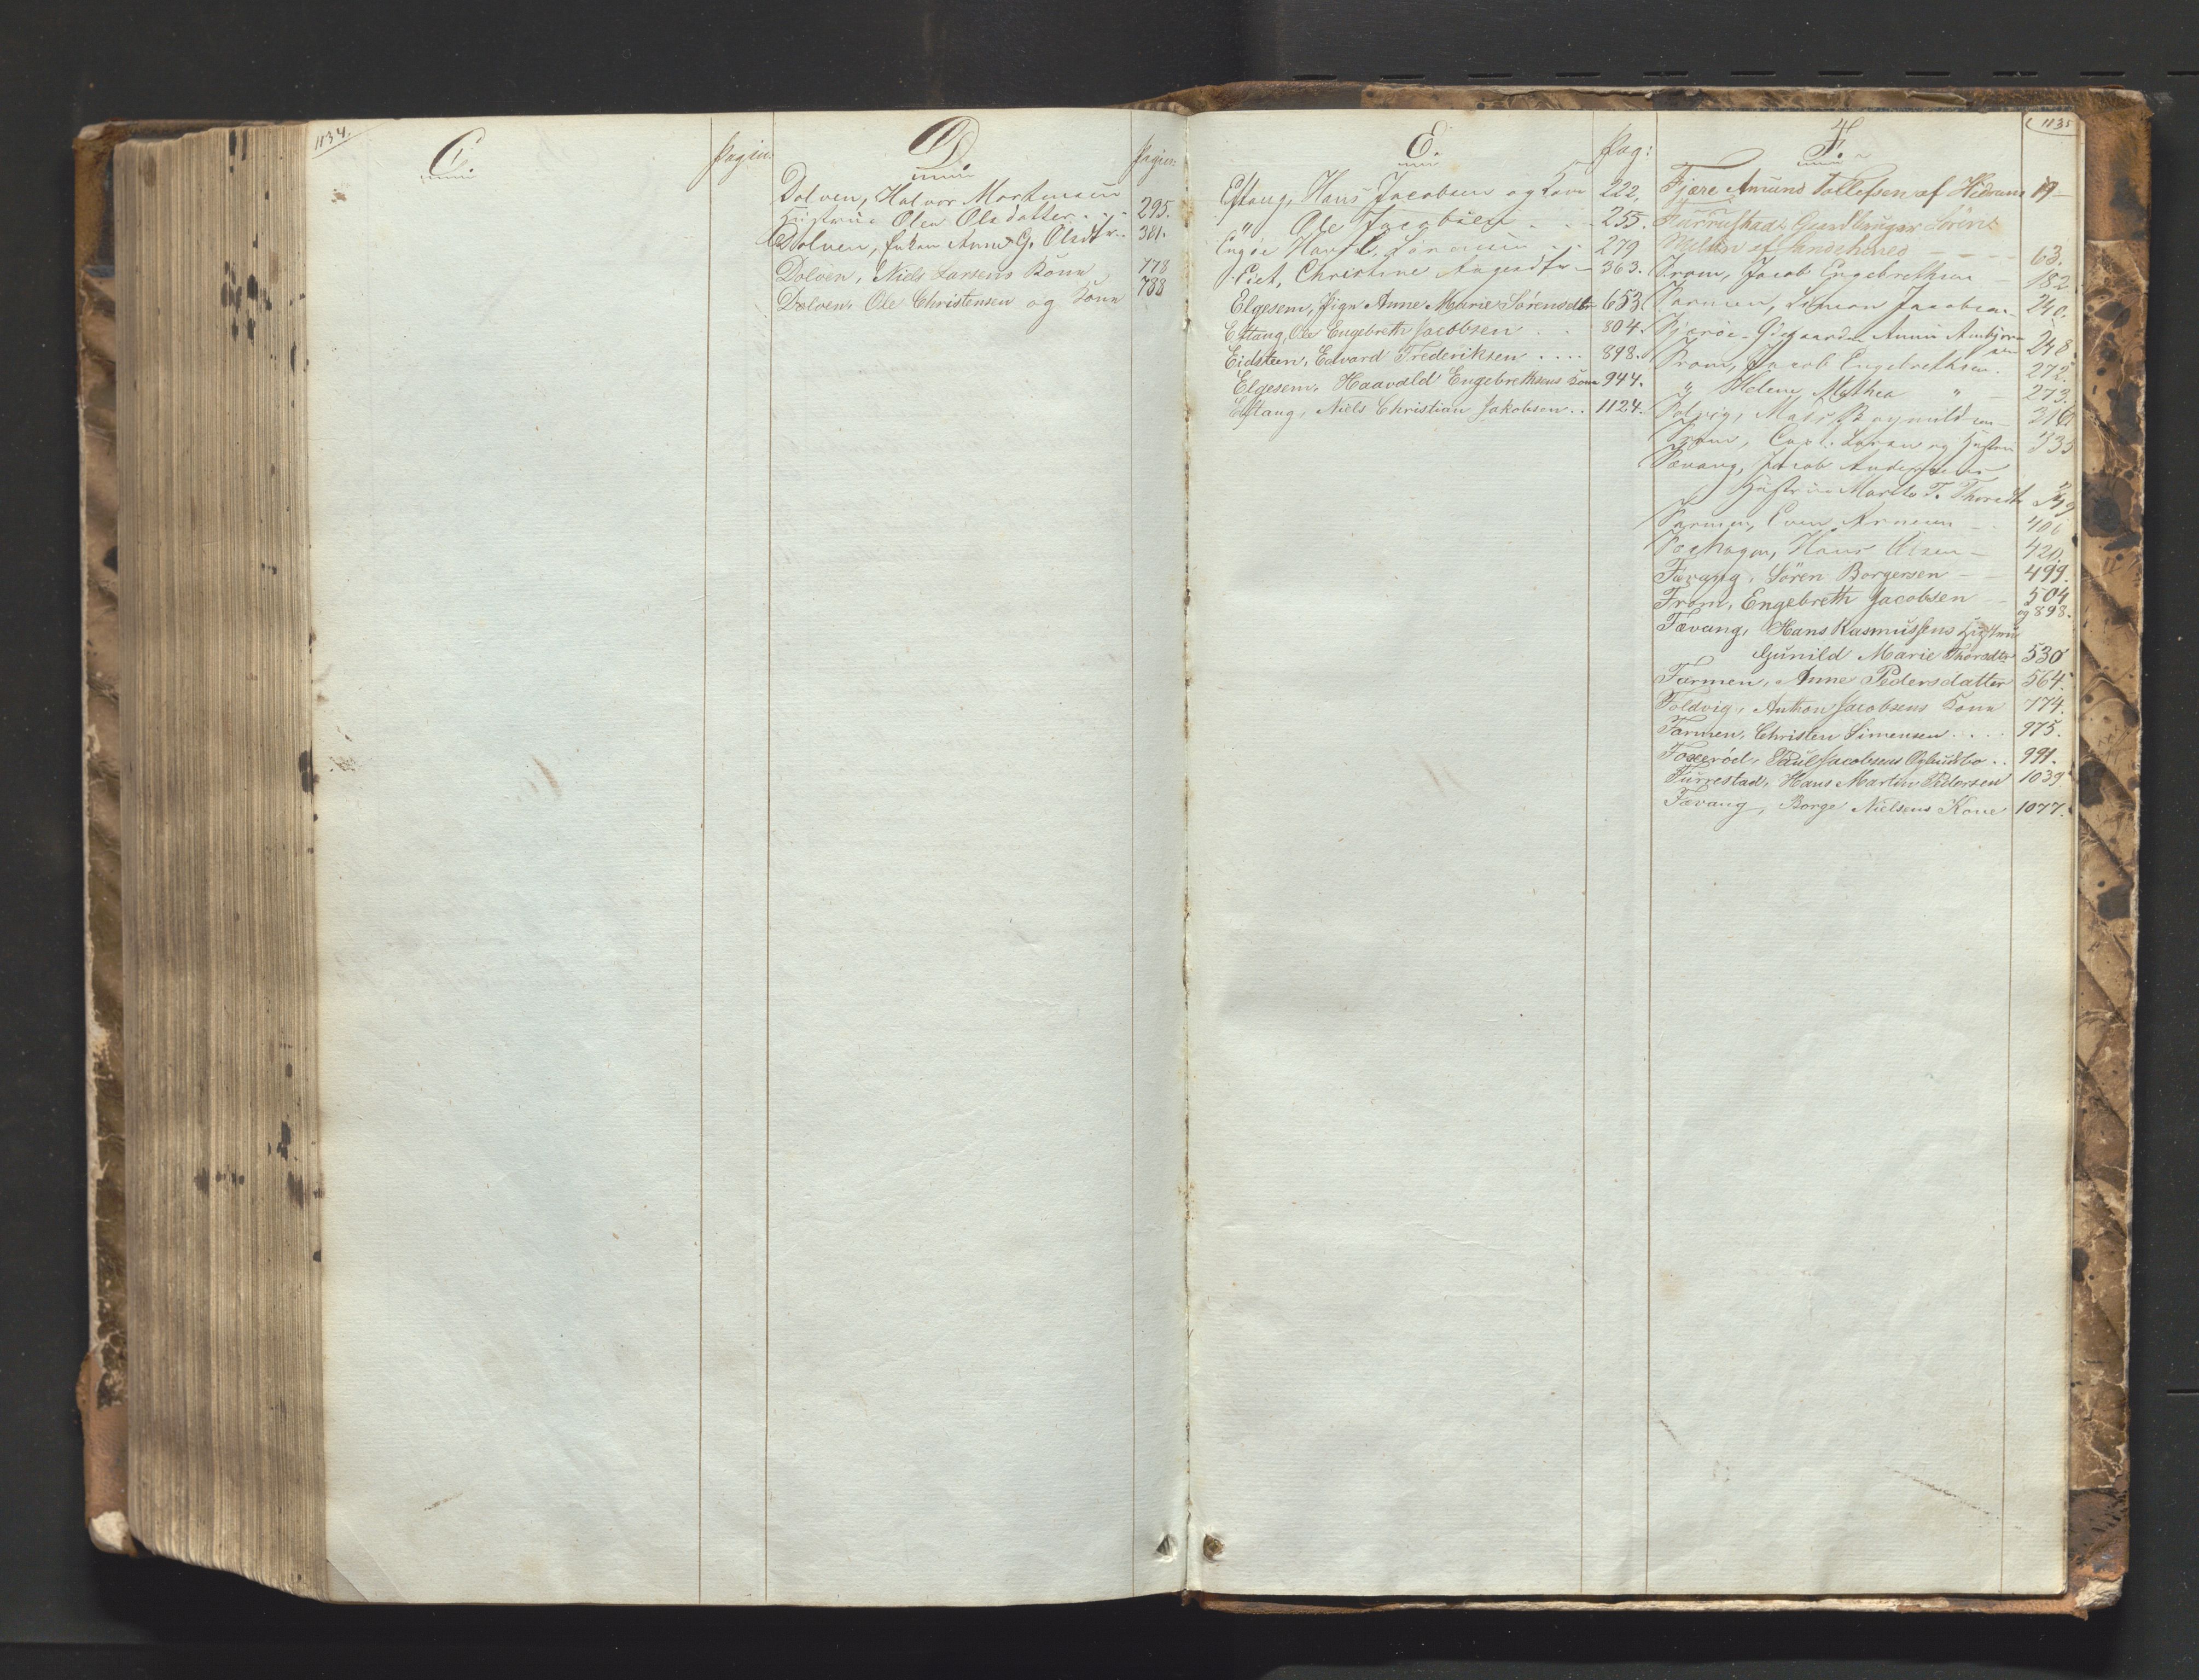 1134.
C.
Pagin:
D.
Pagin:
Dolven, Halvor Mortensens
Hustrue Olea Olsdatter . . . 295.
Dolven, Enken Anne G. Olsdtr. . 381.
Dolven, Niels Larsens Kone 778
Dolven, Ole Christensen og Kone 788
E.
Pag:
Eftang, Hans Jacobsen og Kone 222.
" Ole Jacobsen . . . 255.
Engöe Hans Sörensen . . 279
Christine 363.
Elgesem, Pige Anne Marie Sörensdtr 653
Eftang, Ole Engebreth Jacobsen . . 804.
Eidsteen, Edvard Frederiksen . . . . 898.
Elgesem, Haavald Engebrethsens Kone 944.
Eftang, Niels Christian Jakobsen . . 1124.
F.
1135
Fjære Amund Tollefsen af Hedrum 19
Furrustad, Gundbiugar Sörens
63.
From, Jacob Engebrethsen 182
Farmen, Simon Jacobsen 240.
Anne 248.
From, Jacob Engebrethsen. 272.
" Helene Mathea " 273.
316
From, Capt. Larsen og Hustru 335
Fævang, Jacob Andersens
Hustrue Marthe T. Thorsdtr
Farmen, Even Arnesen 406
Hans Olsen 420.
Fævang, Sören Borgersen 499.
From, Engebreth Jacobsen 504
og 898.
Fævang, Hans Rasmussens Hustrue
Gunild Marie Thorsdtr 530
Farmen, Anne Pedersdatter 564.
Foldvig, Anthon Jacobsens Kone 774.
Farmen, Christen Simensen . . . . 975.
Foxerød, Paul Jacobsens . . 991.
Furrestad, Hans Martin Pedersen 1039
Fævang, Borge Nielsens Kone 1077.